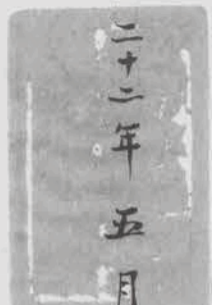 二十二年五月